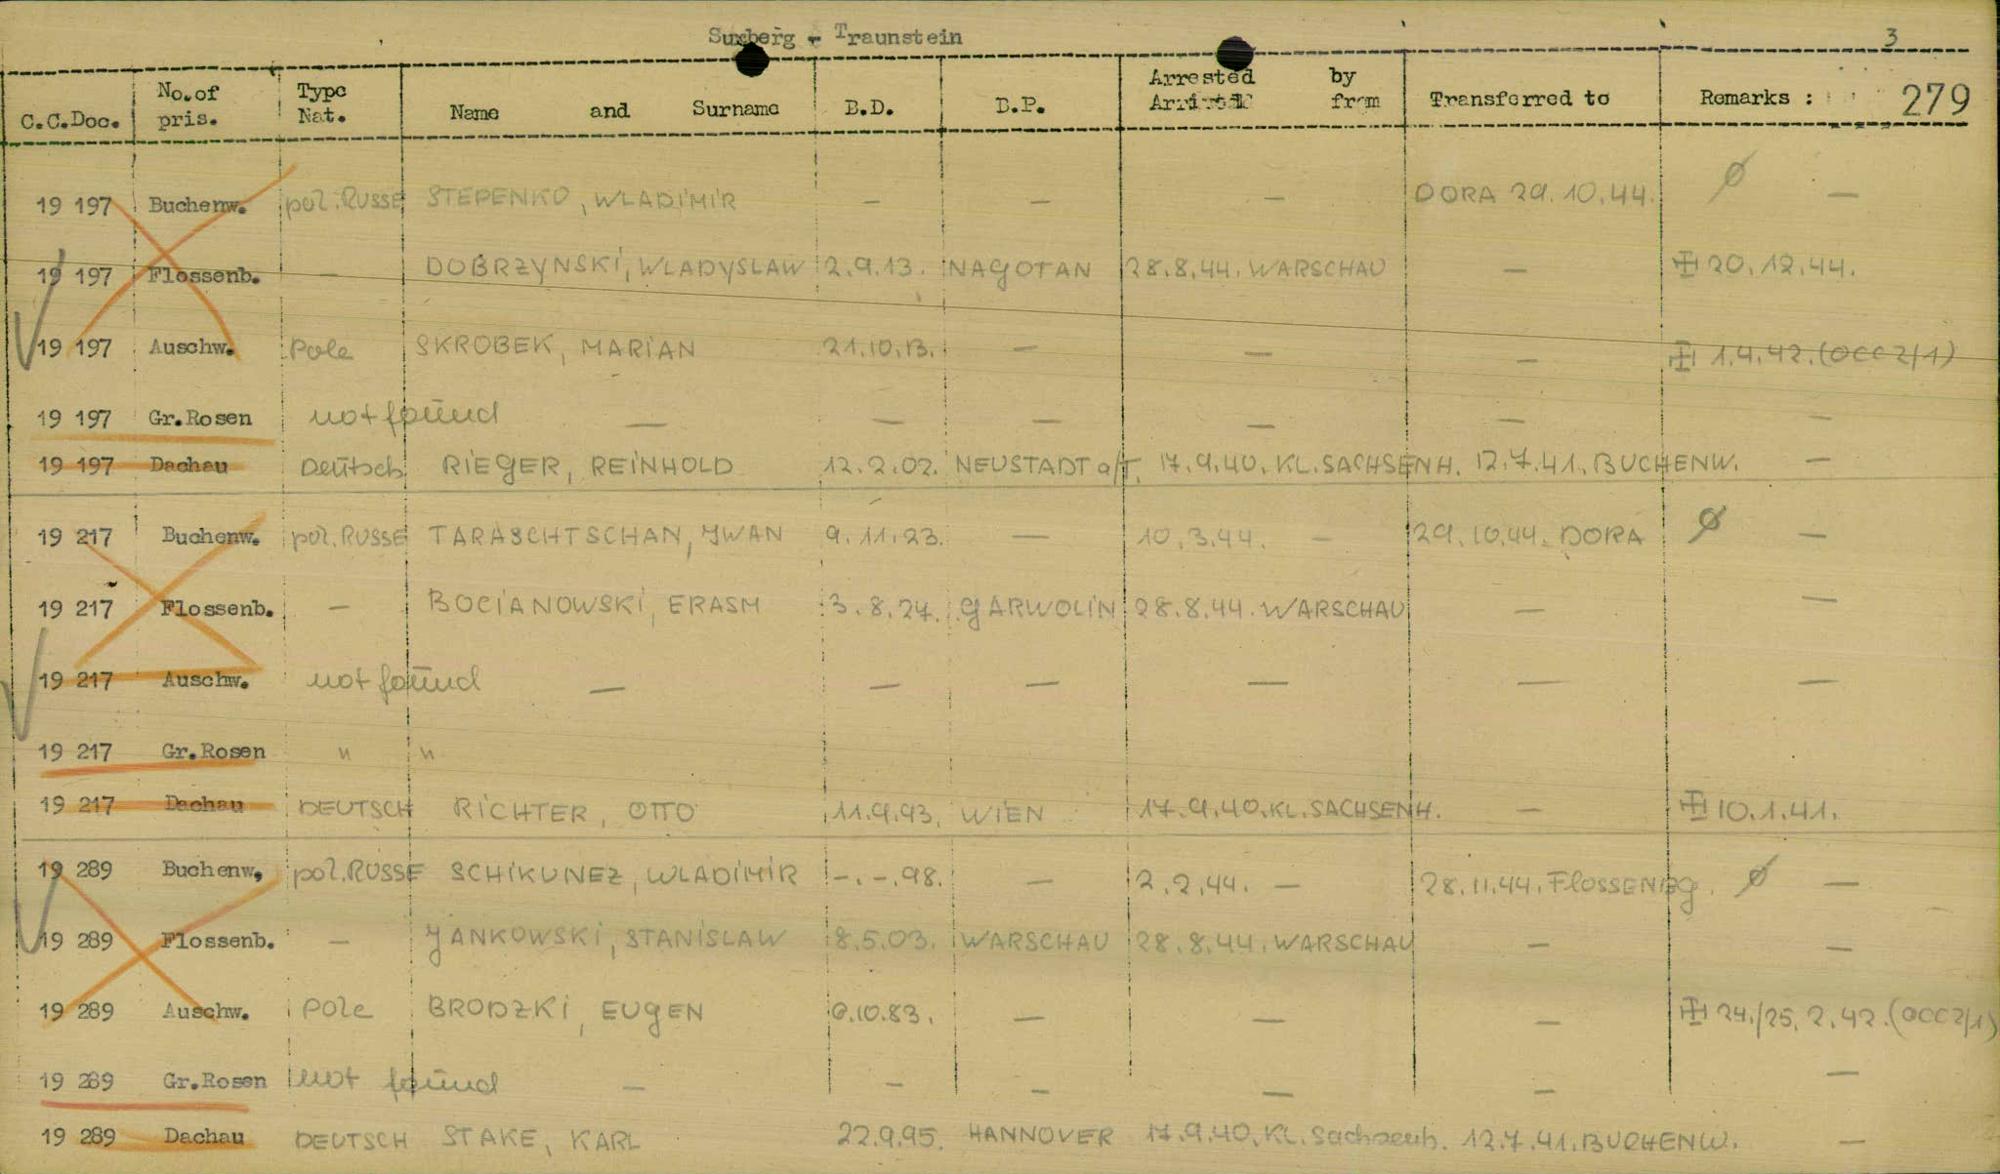 Surberg - Traunstein 3
C.C.Doc. No. of pris. Type Nat. Name and Surname B.D. B.P. Arrested by Arrived from Transferred to Remarks : 279
19 197 Buchenw. pol. RUSSE STEPENKO, WLADIMIR — — — DORA 29.10.44. Ø —
19 197 Flossenb. — DOBRZYNSKI, WLADYSLAW 2.9.13. NAGOTAN 28.8.44. WARSCHAU — 20.12.44.
19 197 Auschw. Pole SKROBEK, MARIAN 21.10.13. — — — 1.4.42. (OCC 2/1)
19 197 Gr.Rosen not found — — — — — —
19 197 Dachau Deutsch RIEGER, REINHOLD 12.2.02. NEUSTADT a/T. 17.9.40. KL. SACHSENH. 12.7.41. BUCHENW. —
19 217 Buchenw. pol. RUSSE TARASCHTSCHAN, JWAN 9.11.23. — 10.3.44. — 29.10.44. DORA Ø —
19 217 Flossenb. — BOCIANOWSKI, ERASM 3.8.27. GARWOLIN 28.8.44. WARSCHAU — —
19 217 Auschw. not found — — — — — —
19 217 Gr.Rosen " "
19 217 Dachau DEUTSCH RICHTER, OTTO 11.9.93. WIEN 17.9.40. KL. SACHSENH. — 10.1.41.
19 289 Buchenw. pol. RUSSE SCHIKUNEZ, WLADIMIR -.-.98. — 2.2.44. — 28.11.44. FLOSSENBG. Ø —
19 289 Flossenb. — JANKOWSKI, STANISLAW 8.5.03. WARSCHAU 28.8.44. WARSCHAU — —
19 289 Auschw. Pole BRODZKI, EUGEN — — — 24./25.2.42. (OCC 2/1)
19 289 Gr.Rosen not found — — — — — —
19 289 Dachau DEUTSCH STAKE, KARL 22.9.95. HANNOVER 17.9.40. KL. Sachsenh. 12.7.41. BUCHENW. —